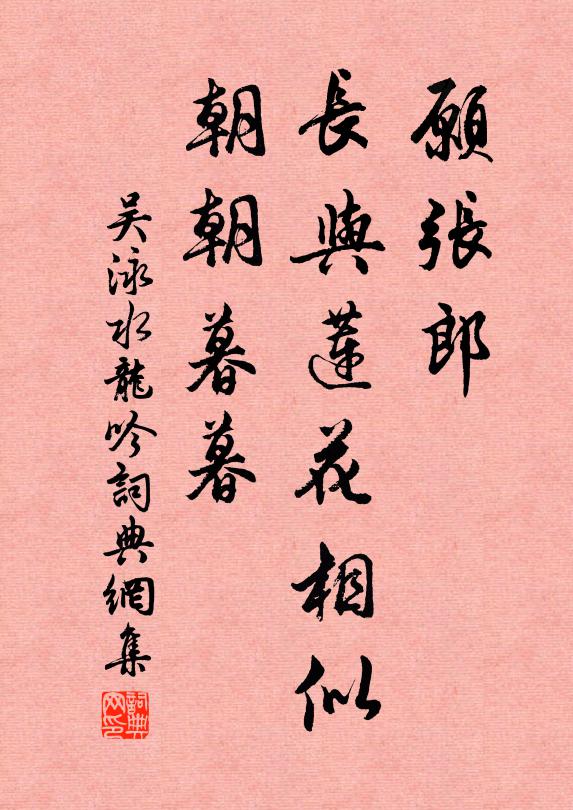 願張郎
長與蓮花相似
朝朝暮暮
吴泳水龍吟詞典網集
詞典网印